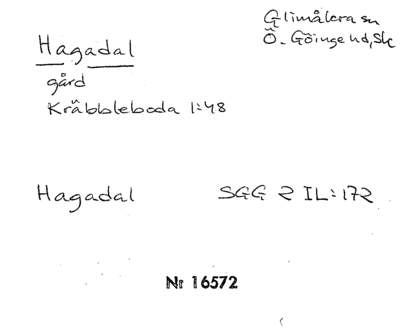 Glimåkra sn
Ö. Göinge hd, Sk
Hagadal
gård
Kräbbleboda 1:48
Hagadal SGG 2 IL:172
Nr 16572